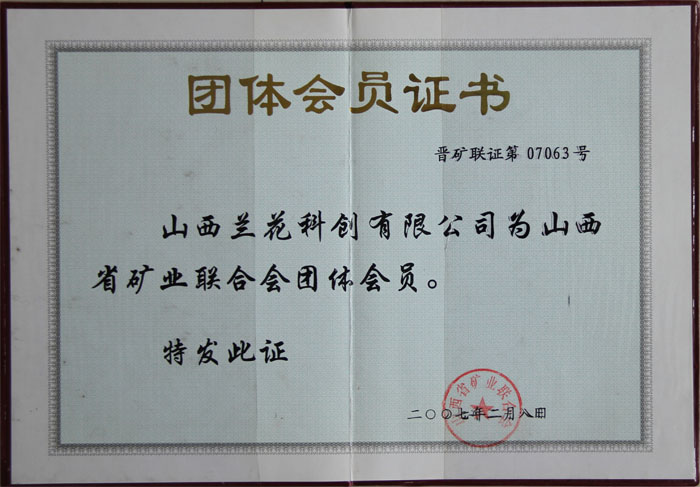 团体会员证书
晋矿联证第 07063 号
山西兰花科创有限公司为山西
省矿业联合会团体会员。
特发此证
山西省矿业联合会
二〇〇七年二月八日